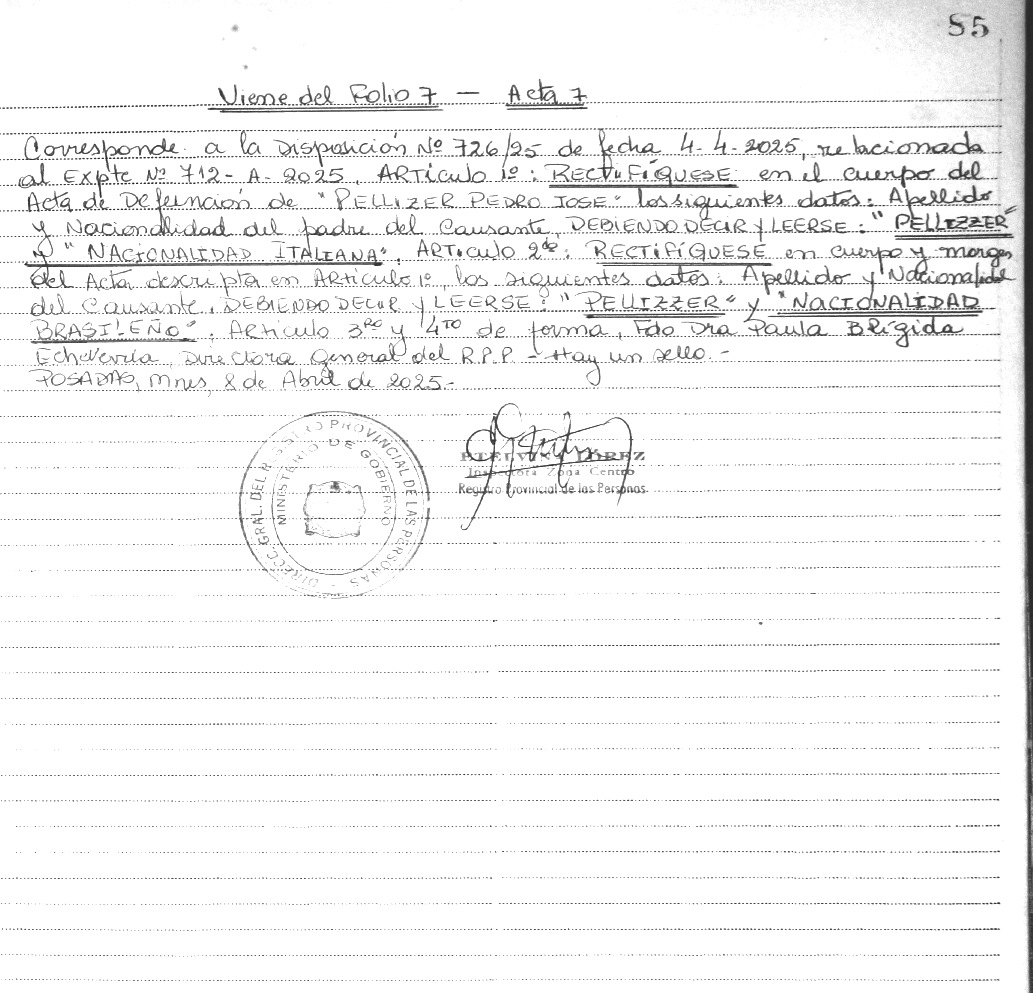 85
Viene del Folio 7 — Acta 7
Corresponde a la Disposición Nº 726/25 de fecha 4-4-2025, relacionada
al Expte Nº 712-A-2025, ARTículo 1º: RECTIFÍQUESE en el cuerpo del
Acta de Defunción de "PELLIZER PEDRO JOSE" los siguientes datos: Apellido
y Nacionalidad del padre del Causante, DEBIENDO DECIR Y LEERSE: "PELLIZZER"
y "NACIONALIDAD ITALIANA", ARTículo 2do: RECTIFÍQUESE en cuerpo y margen
del Acta descripta en ARTículo 1º, los siguientes datos: Apellido y Nacionalidad
del Causante, DEBIENDO DECIR Y LEERSE: "PELLIZZER" y "NACIONALIDAD
BRASILEÑO", ARTículo 3RO y 4TO de forma, Fdo Dra Paula Brígida
Echeverría, Directora General del R.P.P - Hay un sello.-
POSADAS, Mnes, 8 de Abril de 2025.-
DIRECC. GRAL. DEL REGISTRO PROVINCIAL DE LAS PERSONAS
MINISTERIO DE GOBIERNO
Inspectora Zona Centro
Registro Provincial de las Personas